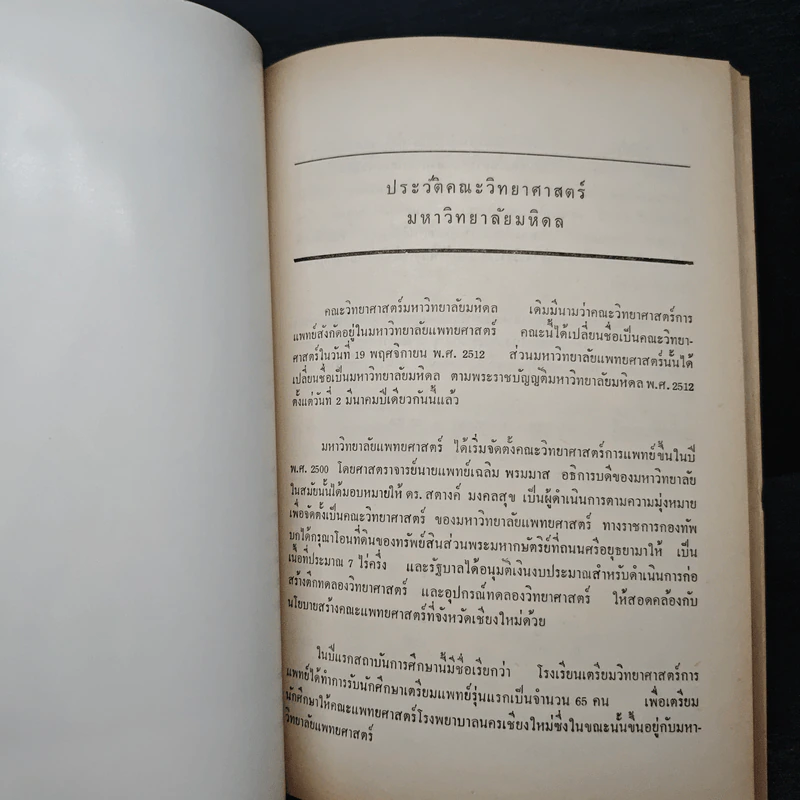 ประวัติคณะวิทยาศาสตร์
มหาวิทยาลัยมหิดล
คณะวิทยาศาสตร์มหาวิทยาลัยมหิดล เดิมมีนามว่าคณะวิทยาศาสตร์การ
แพทย์สังกัดอยู่ในมหาวิทยาลัยแพทยศาสตร์ คณะนี้ได้เปลี่ยนชื่อเป็นคณะวิทยา-
ศาสตร์ในวันที่ 19 พฤศจิกายน พ.ศ. 2512 ส่วนมหาวิทยาลัยแพทยศาสตร์นั้นได้
เปลี่ยนชื่อเป็นมหาวิทยาลัยมหิดล ตามพระราชบัญญัติมหาวิทยาลัยมหิดล พ.ศ. 2512
ตั้งแต่วันที่ 2 มีนาคมปีเดียวกันนี้แล้ว
มหาวิทยาลัยแพทยศาสตร์ ได้เริ่มจัดตั้งคณะวิทยาศาสตร์การแพทย์ขึ้นในปี
พ.ศ. 2500 โดยศาสตราจารย์นายแพทย์เฉลิม พรมมาส อธิการบดีของมหาวิทยาลัย
ในสมัยนั้นได้มอบหมายให้ ดร. สตางค์ มงคลสุข เป็นผู้ดำเนินการตามความมุ่งหมาย
เพื่อจัดตั้งเป็นคณะวิทยาศาสตร์ ของมหาวิทยาลัยแพทยศาสตร์ ทางราชการกองทัพ
บกได้กรุณาโอนที่ดินของทรัพย์สินส่วนพระมหากษัตริย์ที่ถนนศรีอยุธยามาให้ เป็น
เนื้อที่ประมาณ 7 ไร่ครึ่ง และรัฐบาลได้อนุมัติเงินงบประมาณสำหรับดำเนินการก่อ
สร้างตึกทดลองวิทยาศาสตร์ และอุปกรณ์ทดลองวิทยาศาสตร์ ให้สอดคล้องกับ
นโยบายสร้างคณะแพทยศาสตร์ที่จังหวัดเชียงใหม่ด้วย
ในปีแรกสถาบันการศึกษานี้มีชื่อเรียกว่า โรงเรียนเตรียมวิทยาศาสตร์การ
แพทย์ได้ทำการรับนักศึกษาเตรียมแพทย์รุ่นแรกเป็นจำนวน 65 คน เพื่อเตรียม
นักศึกษาให้คณะแพทยศาสตร์โรงพยาบาลนครเชียงใหม่ซึ่งในขณะนั้นขึ้นอยู่กับมหา-
วิทยาลัยแพทยศาสตร์